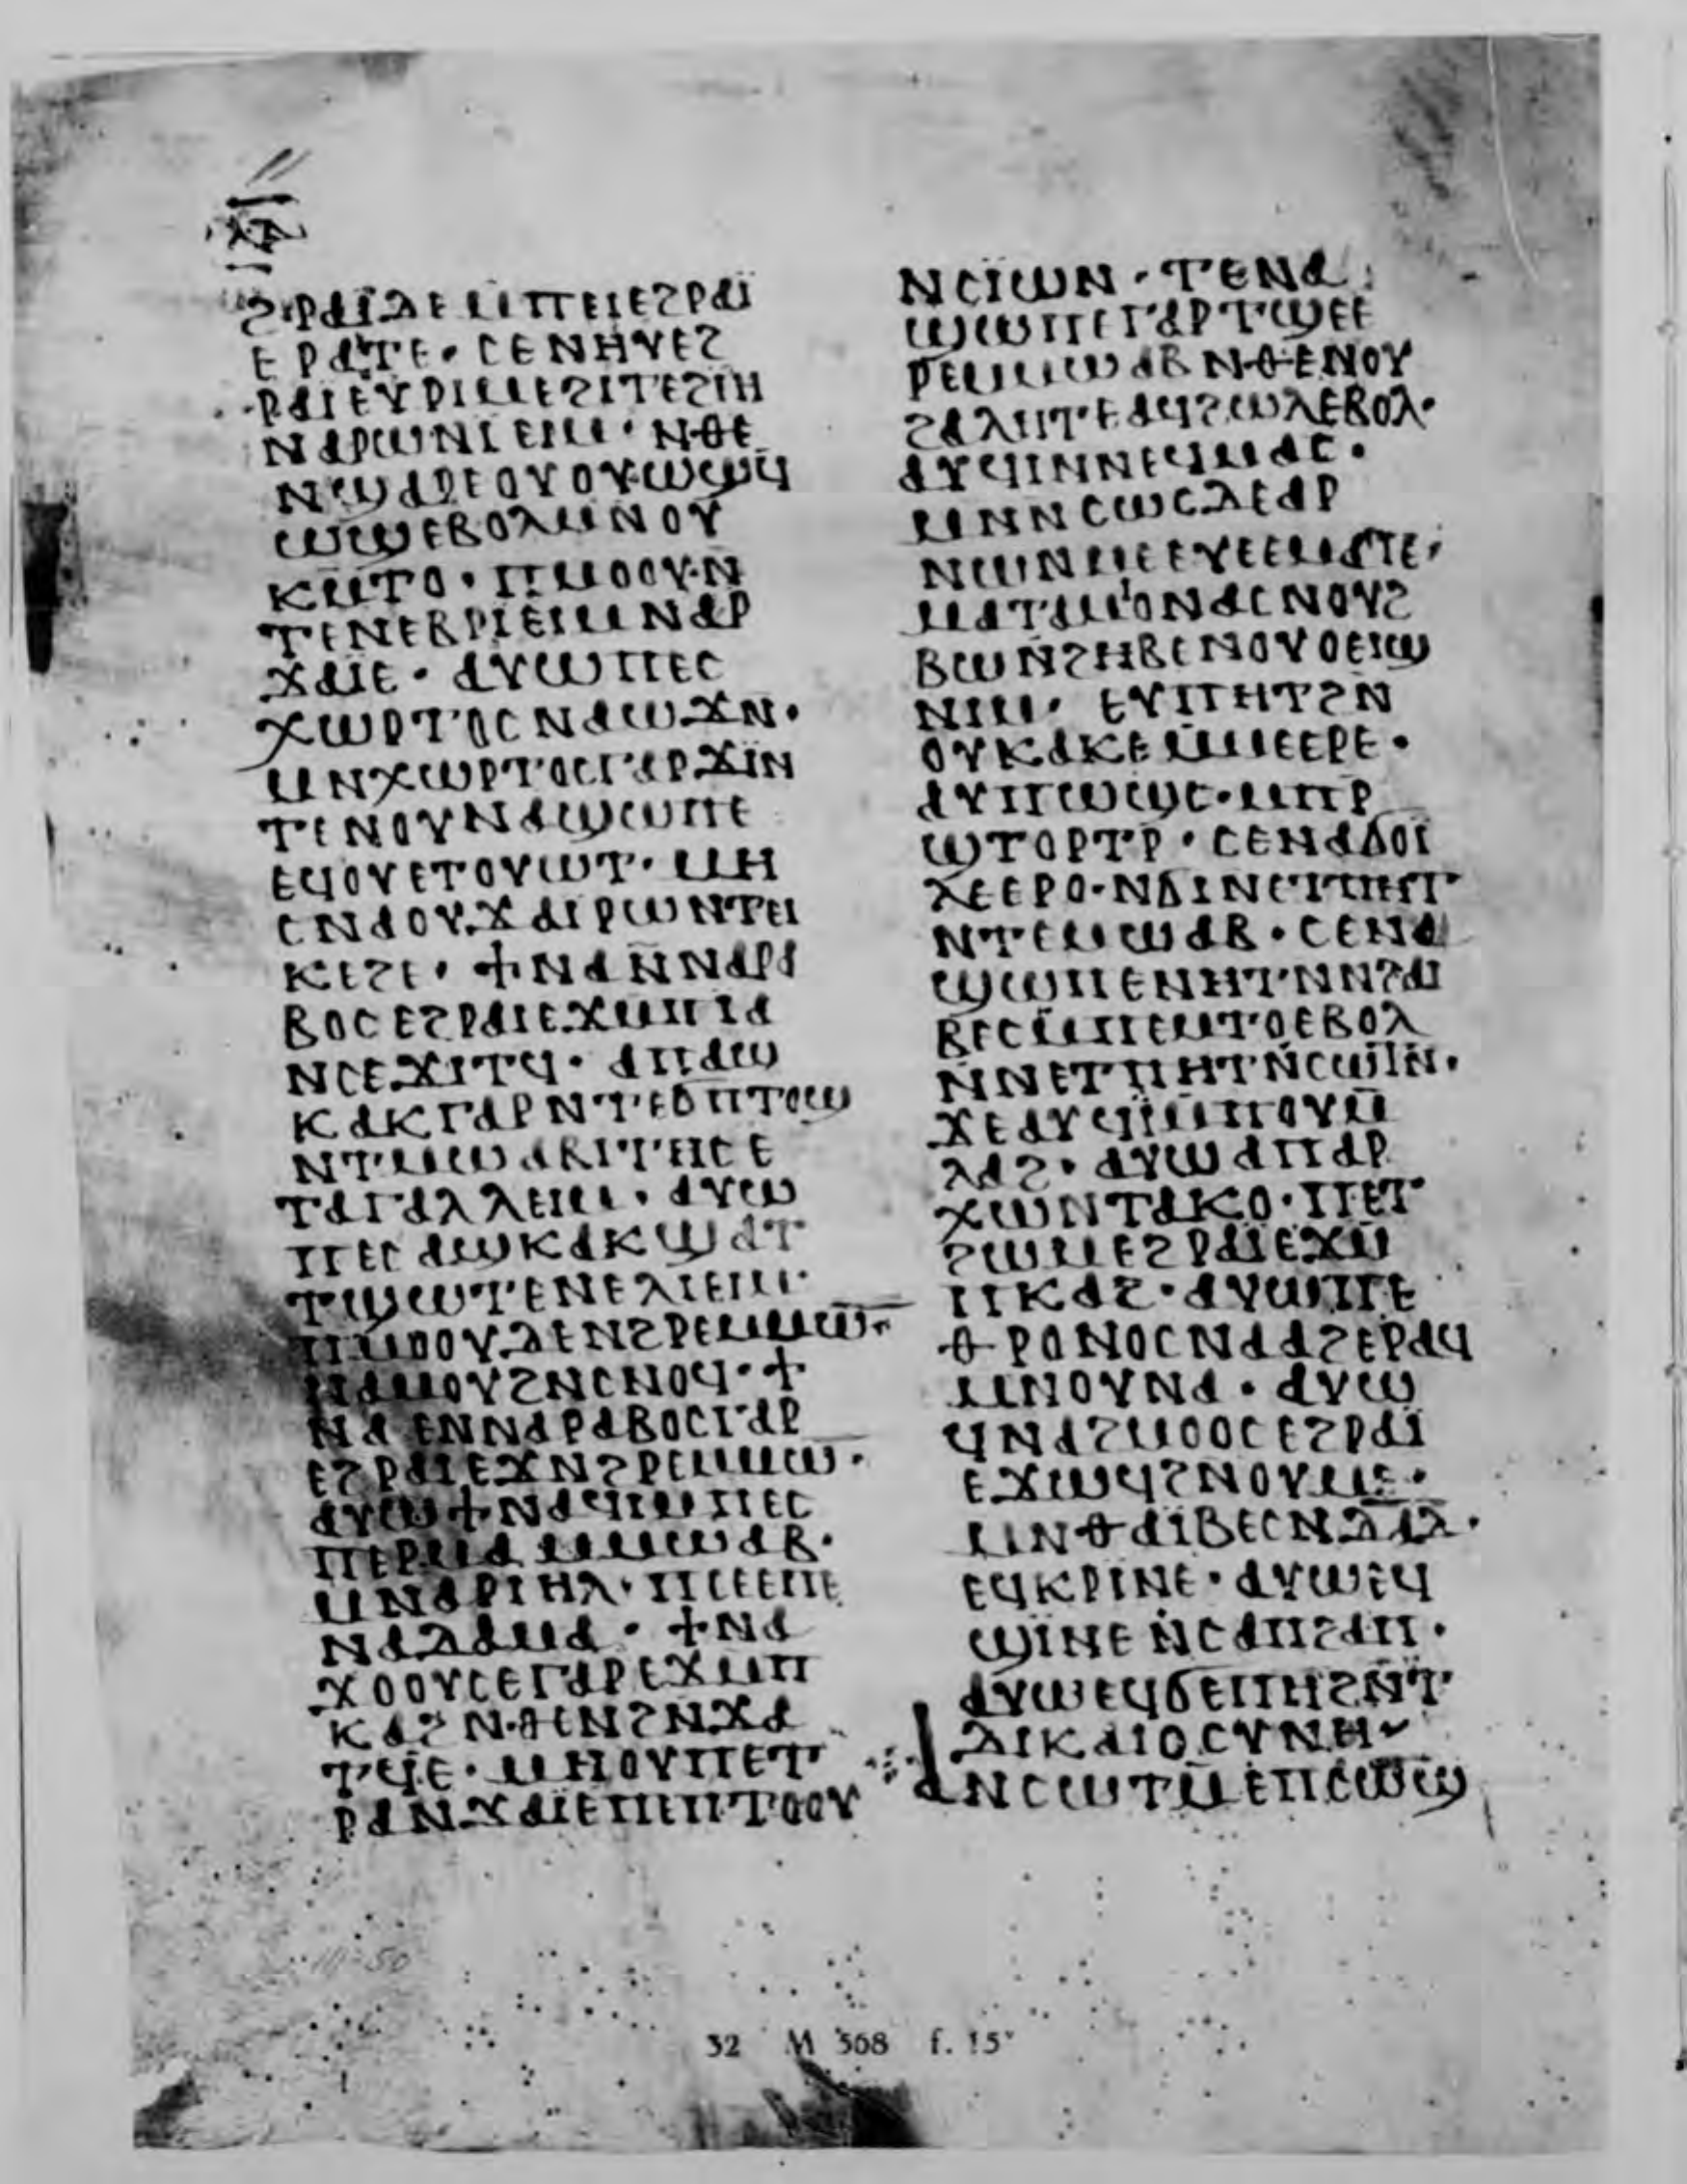 ϩⲣⲁⲓ̈ⲇⲉⲙⲡⲉⲓⲉϩⲣⲁⲓ̈
ⲉⲣⲁⲧⲉ· ⲥⲉⲛⲏⲩⲉϩ
ⲣⲁⲓⲉⲩⲣⲓⲙⲉϩⲓⲧⲉϩⲓⲏ
ⲛⲁⲣⲱⲛⲓⲉⲓⲙ· ⲛⲑⲉ
ⲛϣⲁⲣⲉⲟⲩⲟⲩⲱϣϥ
ⲱϣⲉⲃⲟⲗⲙⲛⲟⲩ
ⲕⲙⲧⲟ· ⲡⲙⲟⲟⲩⲛ
ⲧⲉⲛⲉⲃⲣⲓⲉⲓⲙⲛⲁⲣ
ϫⲁⲓⲉ· ⲁⲩⲱⲡⲉⲥ
ⲭⲱⲣⲧⲟⲥⲛⲁⲱϫⲛ·
ⲙⲛⲭⲱⲣⲧⲟⲥⲅⲁⲣϫⲓ̈ⲛ
ⲧⲉⲛⲟⲩⲛⲁϣⲱⲡⲉ
ⲉϥⲟⲩⲉⲧⲟⲩⲱⲧ· ⲙⲏ
ⲉⲛⲁⲟⲩϫⲁⲓⲣⲱⲛⲧⲉⲓ
ⲕⲉϩⲉ· ϯⲛⲁⲛ̄ⲛⲁⲣⲁ
ⲃⲟⲥⲉϩⲣⲁⲓⲉϫⲙⲡⲓⲁ
ⲛⲥⲉϫⲓⲧϥ· ⲁⲡⲁϣ
ⲕⲁⲕⲅⲁⲣⲛⲧⲉϭⲡⲧⲟϣ
ⲛⲧⲙⲱⲁⲃⲓⲧⲏⲥⲉ
ⲧⲁⲅⲁⲗⲗⲉⲓⲙ· ⲁⲩⲱ
ⲡⲉⲥⲁϣⲕⲁⲕϣⲁⲧ
ⲧϣⲱⲧⲉⲛⲉⲗⲓⲉⲓⲙ·
ⲡⲙⲟⲟⲩⲇⲉⲛϩⲣⲉⲙⲙⲱ·
ⲛⲁⲙⲟⲩϩⲛⲥⲛⲟϥ· ϯ
ⲛⲁⲉⲛⲛⲁⲣⲁⲃⲟⲥⲅⲁⲣ
ⲉϩⲣⲁⲓⲉϫⲛϩⲣⲉⲙⲙⲱ·
ⲁⲩⲱϯⲛⲁϥⲓⲙⲡⲉⲥ
ⲡⲉⲣⲙⲁⲙⲙⲱⲁⲃ·
ⲙⲛⲁⲣⲓⲏⲗ· ⲡⲥⲉⲉⲡⲉ
ⲛⲁⲇⲁⲙⲁ· ϯⲛⲁ
ϫⲟⲟⲩⲥⲉⲅⲁⲣⲉϫⲙⲡ
ⲕⲁϩⲛⲑⲉⲛϩⲛϫⲁ
ⲧϥⲉ· ⲙⲏⲟⲩⲡⲉⲧ
ⲣⲁⲛϫⲁⲓⲉⲡⲉⲡⲧⲟⲟⲩ
ⲛⲥⲓ̈ⲱⲛ· ⲧⲉⲛⲁ
ϣⲱⲡⲉⲅⲁⲣⲧϣⲉⲉ
ⲣⲉⲙⲙⲱⲁⲃⲛⲑⲉⲛⲟⲩ
ϩⲁⲗⲏⲧⲉⲁϥϩⲱⲗⲉⲃⲟⲗ·
ⲁⲩϥⲓⲛⲛⲉϥⲙⲁⲥ·
ⲙⲛⲛⲥⲱⲥⲇⲉⲁⲣ
ⲛⲱⲛⲙⲉⲉⲩⲉⲉⲙⲁⲧⲉ·
ⲙⲁⲧⲁⲙⲓⲟⲛⲁⲥⲛⲟⲩϩ
ⲃⲱⲛϩⲏⲃⲉⲛⲟⲩⲟⲉⲓϣ
ⲛⲓⲙ· ⲉⲩⲡⲏⲧϩⲛ
ⲟⲩⲕⲁⲕⲉⲙⲙⲉⲉⲣⲉ·
ⲁⲩⲡⲱϣⲥ·ⲙⲡⲣ
ϣⲧⲟⲣⲧⲣ· ⲥⲉⲛⲁϭⲟⲓ̈
ⲗⲉⲉⲣⲟ·ⲛϭⲓⲛⲉⲧⲡⲏⲧ
ⲛⲧⲉⲙⲱⲁⲃ· ⲥⲉⲛⲁ
ϣⲱⲡⲉⲛⲏⲧⲛⲛϩⲁⲓ
ⲃⲉⲥⲙ̄ⲡⲉⲙⲧⲟⲉⲃⲟⲗ
ⲛⲛⲉⲧⲡⲏⲧⲛ̄ⲥⲱⲧⲛ·
ϫⲉⲁⲩϥⲓⲙⲡⲟⲩⲙ
ⲗⲁϩ· ⲁⲩⲱⲁⲡⲁⲣ
ⲭⲱⲛⲧⲁⲕⲟ·ⲡⲉⲧ
ϩⲱⲙⲉϩⲣⲁⲓⲉϫⲙ̄
ⲡⲕⲁϩ· ⲁⲩⲱⲡⲉ
ⲑⲣⲟⲛⲟⲥⲛⲁⲁϩⲉⲣⲁϥ
ⲙⲛⲟⲩⲛⲁ· ⲁⲩⲱ
ϥⲛⲁϩⲙⲟⲟⲥⲉϩⲣⲁⲓ̈
ⲉϫⲱϥϩⲛⲟⲩⲙⲉ·
ⲙⲛⲑⲁⲓ̈ⲃⲉⲥⲛⲇⲁⲇ·
ⲉϥⲕⲣⲓⲛⲉ· ⲁⲩⲱⲉϥ
ϣⲓⲛⲉⲛ̇ⲥⲁⲡϩⲁⲡ·
ⲁⲩⲱⲉϥϭⲉⲡⲏϩⲛⲧ
ⲇⲓⲕⲁⲓⲟⲥⲩⲛⲏ
ⲁⲛⲥⲱⲧⲙ̄ⲉⲡⲥⲱϣ
32 M 568 f. 15ᵛ